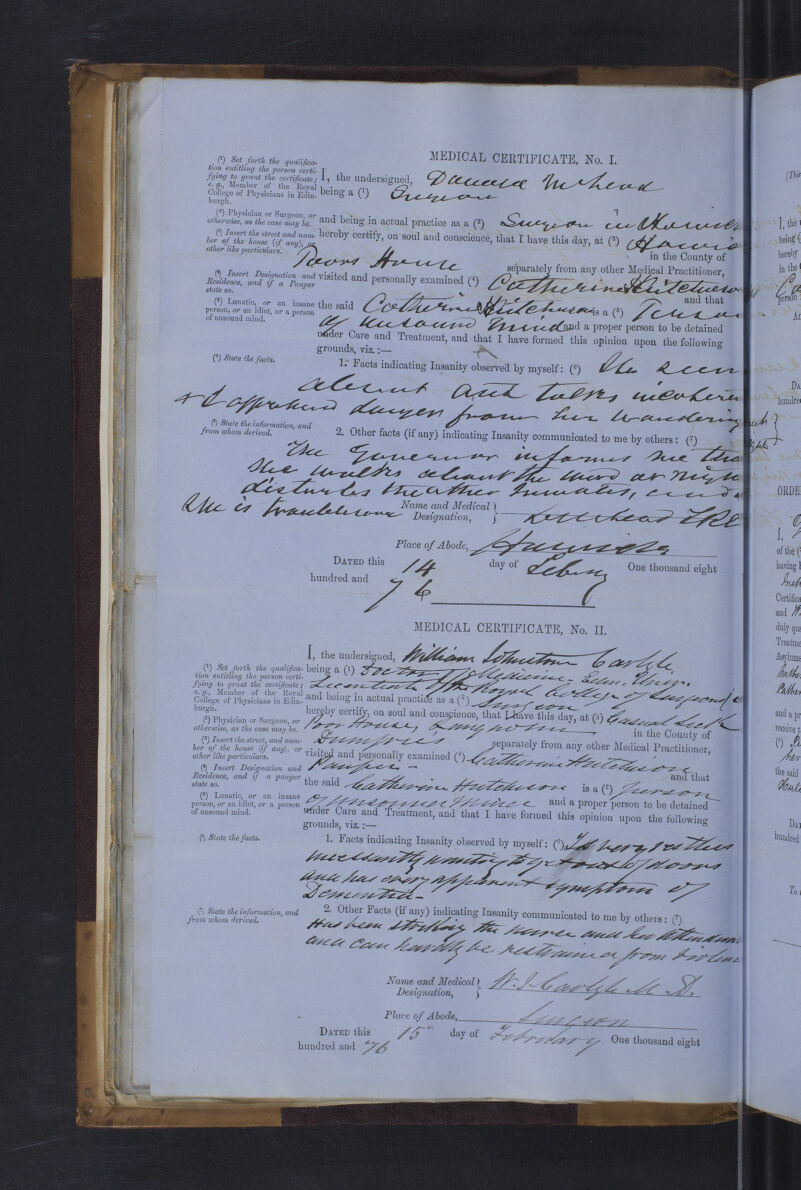 MEDICAL CERTIFICATE, No. I.
(¹) Set forth the qualifica-
tion entitling the person certi-
fying to grant the certificate;
e. g., Member of the Royal
College of Physicians in Edin-
burgh.
I, the undersigned, Donald McLeod
being a (¹) Surgeon
(²) Physician or Surgeon, or
otherwise, as the case may be.
and being in actual practice as a (²) Surgeon in Hawick
(³) Insert the street and num-
ber of the house (if any), or
other like particulars.
hereby certify, on soul and conscience, that I have this day, at (³) Hawick
Poors House in the County of
separately from any other Medical Practitioner,
(⁴) Insert Designation and
Residence, and if a Pauper
state so.
visited and personally examined (⁴) Catherine Hutchison
and that
(⁵) Lunatic, or an insane
person, or an idiot, or a person
of unsound mind.
the said Catherine Hutchison is a (⁵) Person
of unsound mind and a proper person to be detained
under Care and Treatment, and that I have formed this opinion upon the following
grounds, viz.:—
(⁶) State the facts.
1. Facts indicating Insanity observed by myself: (⁶) She
absent and talks
& I apprehend danger from her wandering
(⁷) State the information, and
from whom derived.
2. Other facts (if any) indicating Insanity communicated to me by others: (⁷)
The Governor informs me
she walks about the ward at night
disturbs the other Inmates, and
She is troublesome
Name and Medical
Designation,
Place of Abode, Hawick
DATED this 14 day of Feby One thousand eight
hundred and 76
MEDICAL CERTIFICATE, No. II.
(¹) Set forth the qualifica-
tion entitling the person certi-
fying to grant the certificate;
e. g., Member of the Royal
College of Physicians in Edin-
burgh.
I, the undersigned, William Johnstone Carlyle
being a (¹) Doctor of Medicine Edin. Univ.
Licentiate of the Royal College of Surgeons
and being in actual practice as a (²) Surgeon
(²) Physician or Surgeon, or
otherwise, as the case may be.
hereby certify, on soul and conscience, that I have this day, at (³) Casual Sick
(³) Insert the street, and num-
ber of the house (if any), or
other like particulars.
Poor House, Langholm in the County of
Dumfries separately from any other Medical Practitioner,
(⁴) Insert Designation and
Residence, and if a pauper
state so.
visited and personally examined (⁴) Catherine Hutchison
Pauper and that
(⁵) Lunatic, or an insane
person, or an idiot, or a person
of unsound mind.
the said Catherine Hutchison is a (⁵) person
of unsound mind and a proper person to be detained
under Care and Treatment, and that I have formed this opinion upon the following
grounds, viz.:—
(⁶) State the facts.
1. Facts indicating Insanity observed by myself: (⁶) Is very restless
incessantly wanting to get out of doors
and has every apparent symptom of
Dementia-
(⁷) State the information, and
from whom derived.
2. Other Facts (if any) indicating Insanity communicated to me by others: (⁷)
Has been striking the nurse and her attendants
and can hardly be restrained from violence
Name and Medical
Designation,
W. J. Carlyle M.D.
Place of Abode, Surgeon
DATED this 15" day of February One thousand eight
hundred and 76